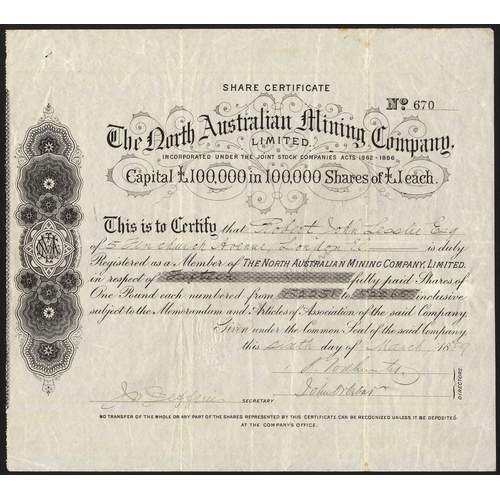 SHARE CERTIFICATE
No 670
The North Australian Mining Company,
LIMITED.
INCORPORATED UNDER THE JOINT STOCK COMPANIES ACTS 1862-1886
Capital £100,000 in 100,000 Shares of £1 each.
This is to Certify that Robert John Lesslie Esq
of 5 Fenchurch Avenue, London E.C. is duly
Registered as a Member of THE NORTH AUSTRALIAN MINING COMPANY, LIMITED.
in respect of fully paid Shares of
One Pound each numbered from to inclusive
subject to the Memorandum and Articles of Association of the said Company.
Given under the Common Seal of the said Company,
this sixth day of March 1889
DIRECTORS.
SECRETARY.
NO TRANSFER OF THE WHOLE OR ANY PART OF THE SHARES REPRESENTED BY THIS CERTIFICATE CAN BE RECOGNIZED UNLESS IT BE DEPOSITED
AT THE COMPANY'S OFFICE.